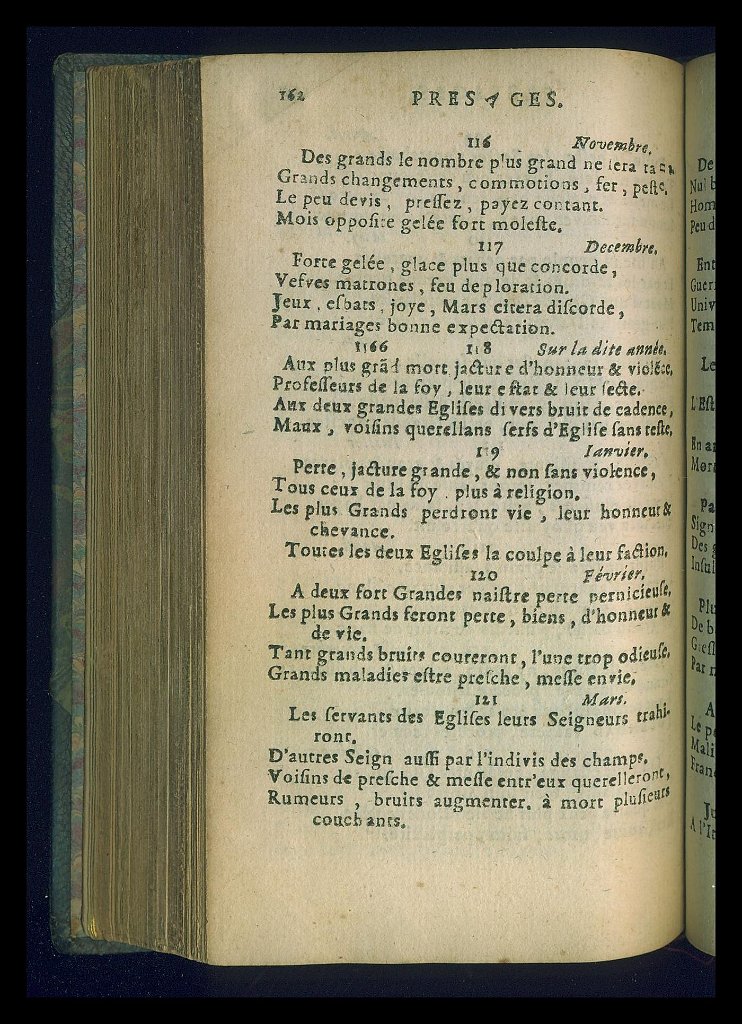 162 PRESAGES.
116 Novembre.
Des grands le nombre plus grand ne ſera
Grands changements, commotions, fer, peſte,
Le peu devis, preſſez, payez contant.
Mois oppoſite gelée fort moleſte.
117 Decembre.
Forte gelée, glace plus que concorde,
Vefves matrones, feu deploration.
Jeux, eſbats, joye, Mars citera diſcorde,
Par mariages bonne expectation.
1566 118 Sur la dite année.
Aux plus grãd mort, jacture d'honneur & violẽce,
Profeſſeurs de la foy, leur eſtat & leur ſecte.
Aux deux grandes Egliſes divers bruit de cadence,
Maux, voiſins querellans ſerfs d'Egliſe ſans teſte,
119 Ianvier.
Perte, jacture grande, & non ſans violence,
Tous ceux de la foy plus à religion.
Les plus Grands perdront vie, leur honneur &
chevance.
Toutes les deux Egliſes la coulpe à leur faction.
120 Février.
A deux fort Grandes naiſtre perte pernicieuſe,
Les plus Grands feront perte, biens, d'honneur &
de vie.
Tant grands bruits coureront, l'une trop odieuſe.
Grands maladies eſtre preſche, meſſe envie.
121 Mars.
Les ſervants des Egliſes leurs Seigneurs trahi-
ront.
D'autres Seign auſſi par l'indivis des champs.
Voiſins de preſche & meſſe entr'eux querelleront,
Rumeurs, bruits augmenter. à mort pluſieurs
couchants.
De
Nul
Hom
Peu d
Ent
Guer
Univ
Tem
Le
L'Eſt
En a
Mor
Pa
Sign
Des
Inſul
Plu
De b
Par
A
Le pe
Mali
Franc
Ju
A l'